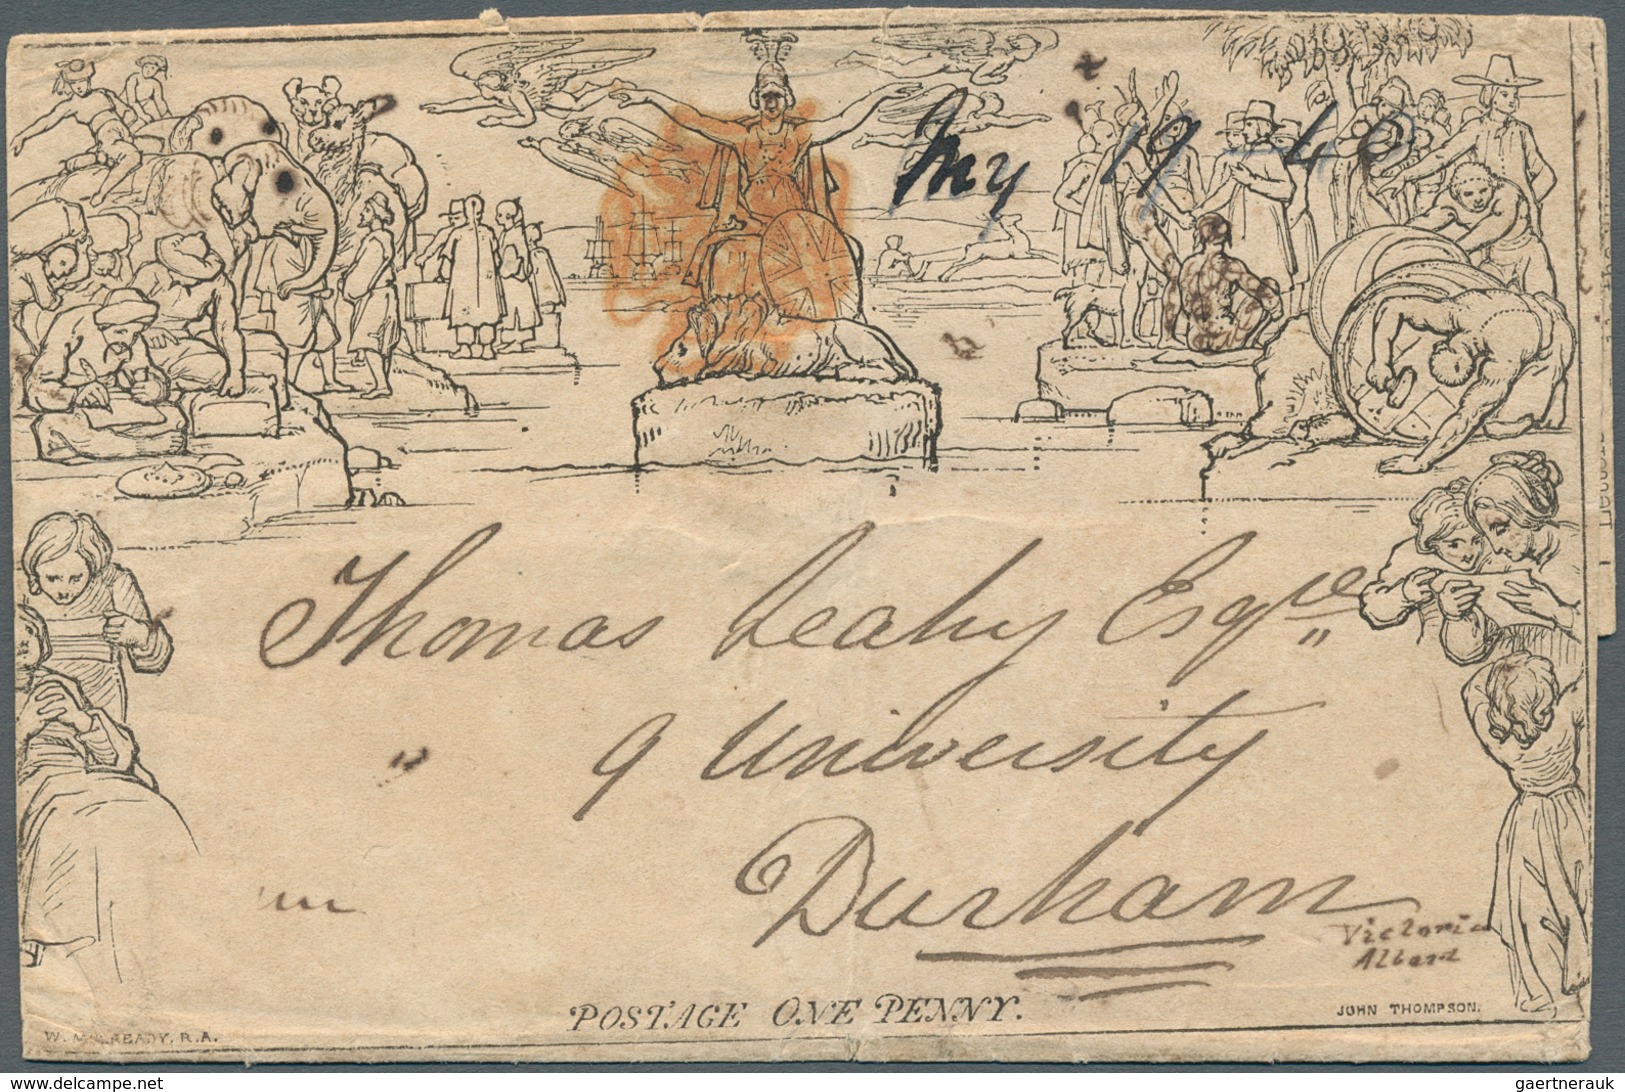 My 19 - 40
Thomas Leahy Esqre
9 University
Durham
Victoria
Albert
POSTAGE ONE PENNY.
JOHN THOMPSON.
W. MULREADY, R.A.
© www.delcampe.net
gaertnerauk